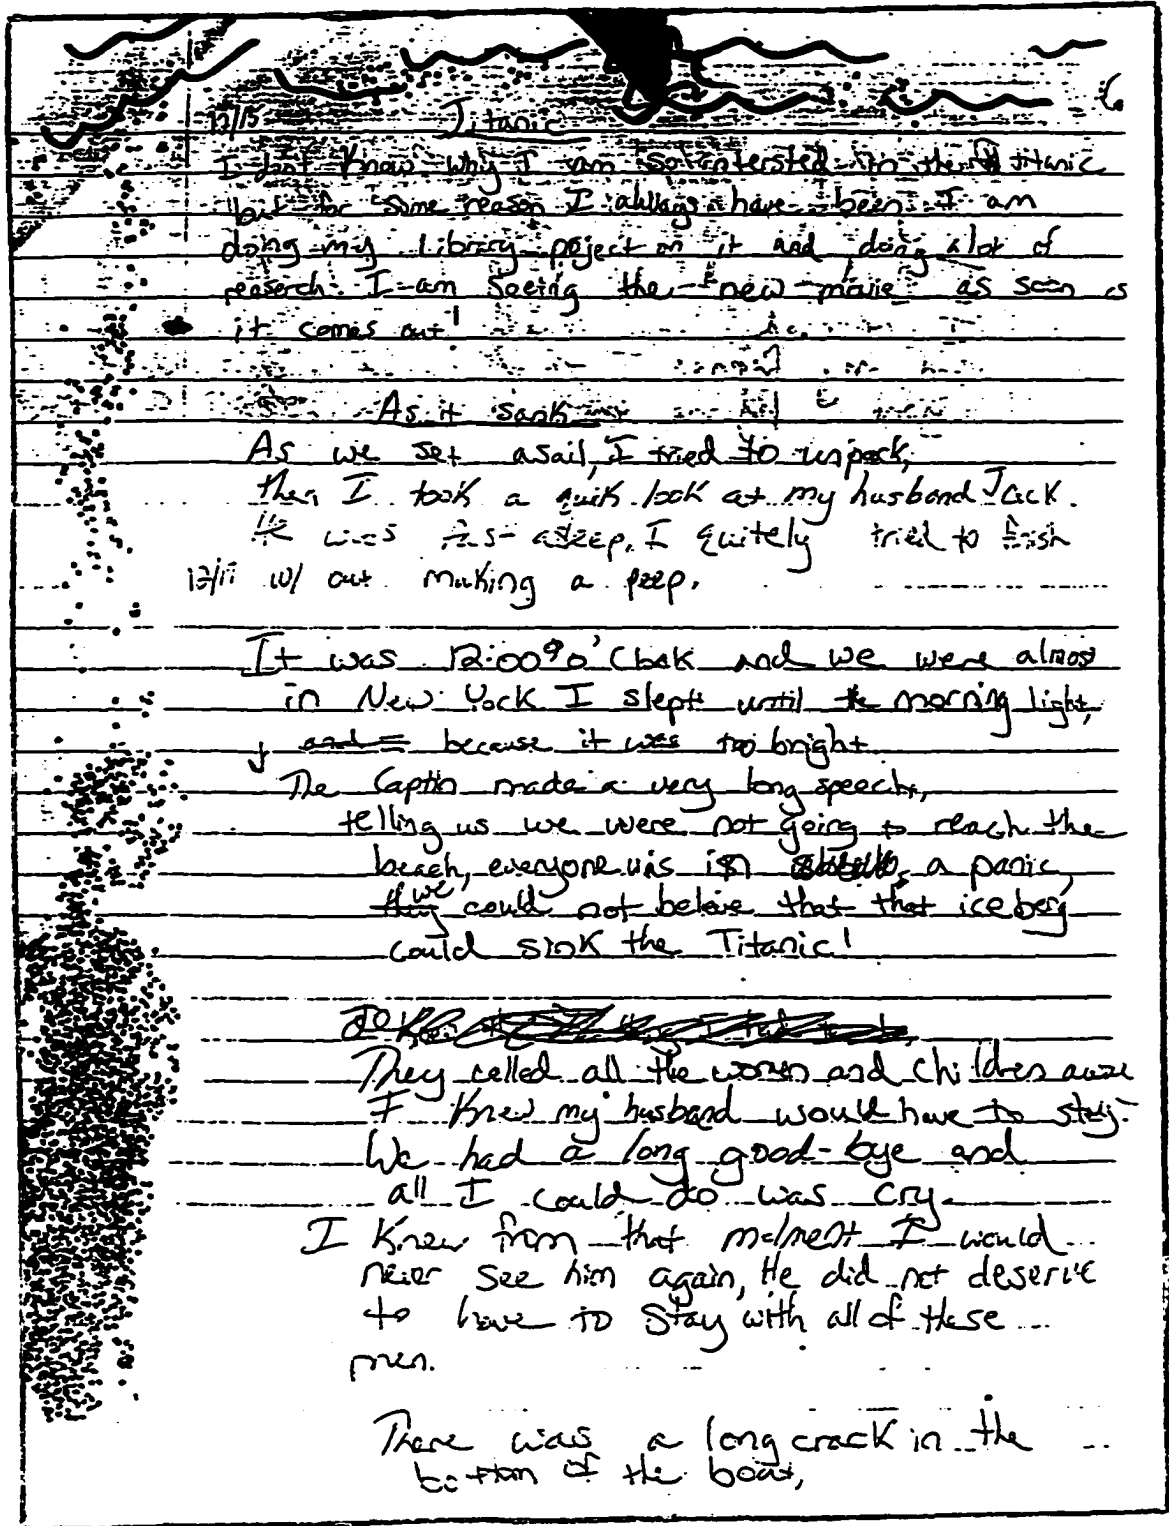 12/15 Titanic
I dont know why I am so intersted in the titanic
but for some reason I always have been. I am
doing my library poject on it and doing a lot of
reaserch. I am seeing the "new movie" as soon as
it comes out!
As it sank
As we set asail, I tried to unpack,
then I took a quik look at my husband Jack.
He was fast asleep, I quitely tried to finish
12/17 w/ out making a peep.
It was 12:00 o'Clock and we were almost
in New York I slept until the morning light,
because it was too bright
The Captin made a very long speech,
telling us we were not going to reach the
beach, everyone was in a panic,
we could not beleive that that iceberg
could sink the Titanic!
They called all the women and children
I knew my husband would have to stay.
We had a long good-bye and
all I could do was cry.
I knew from that moment I would
never see him again, He did not deserve
to have to stay with all of these
men.
There was a long crack in the
bottom of the boat,